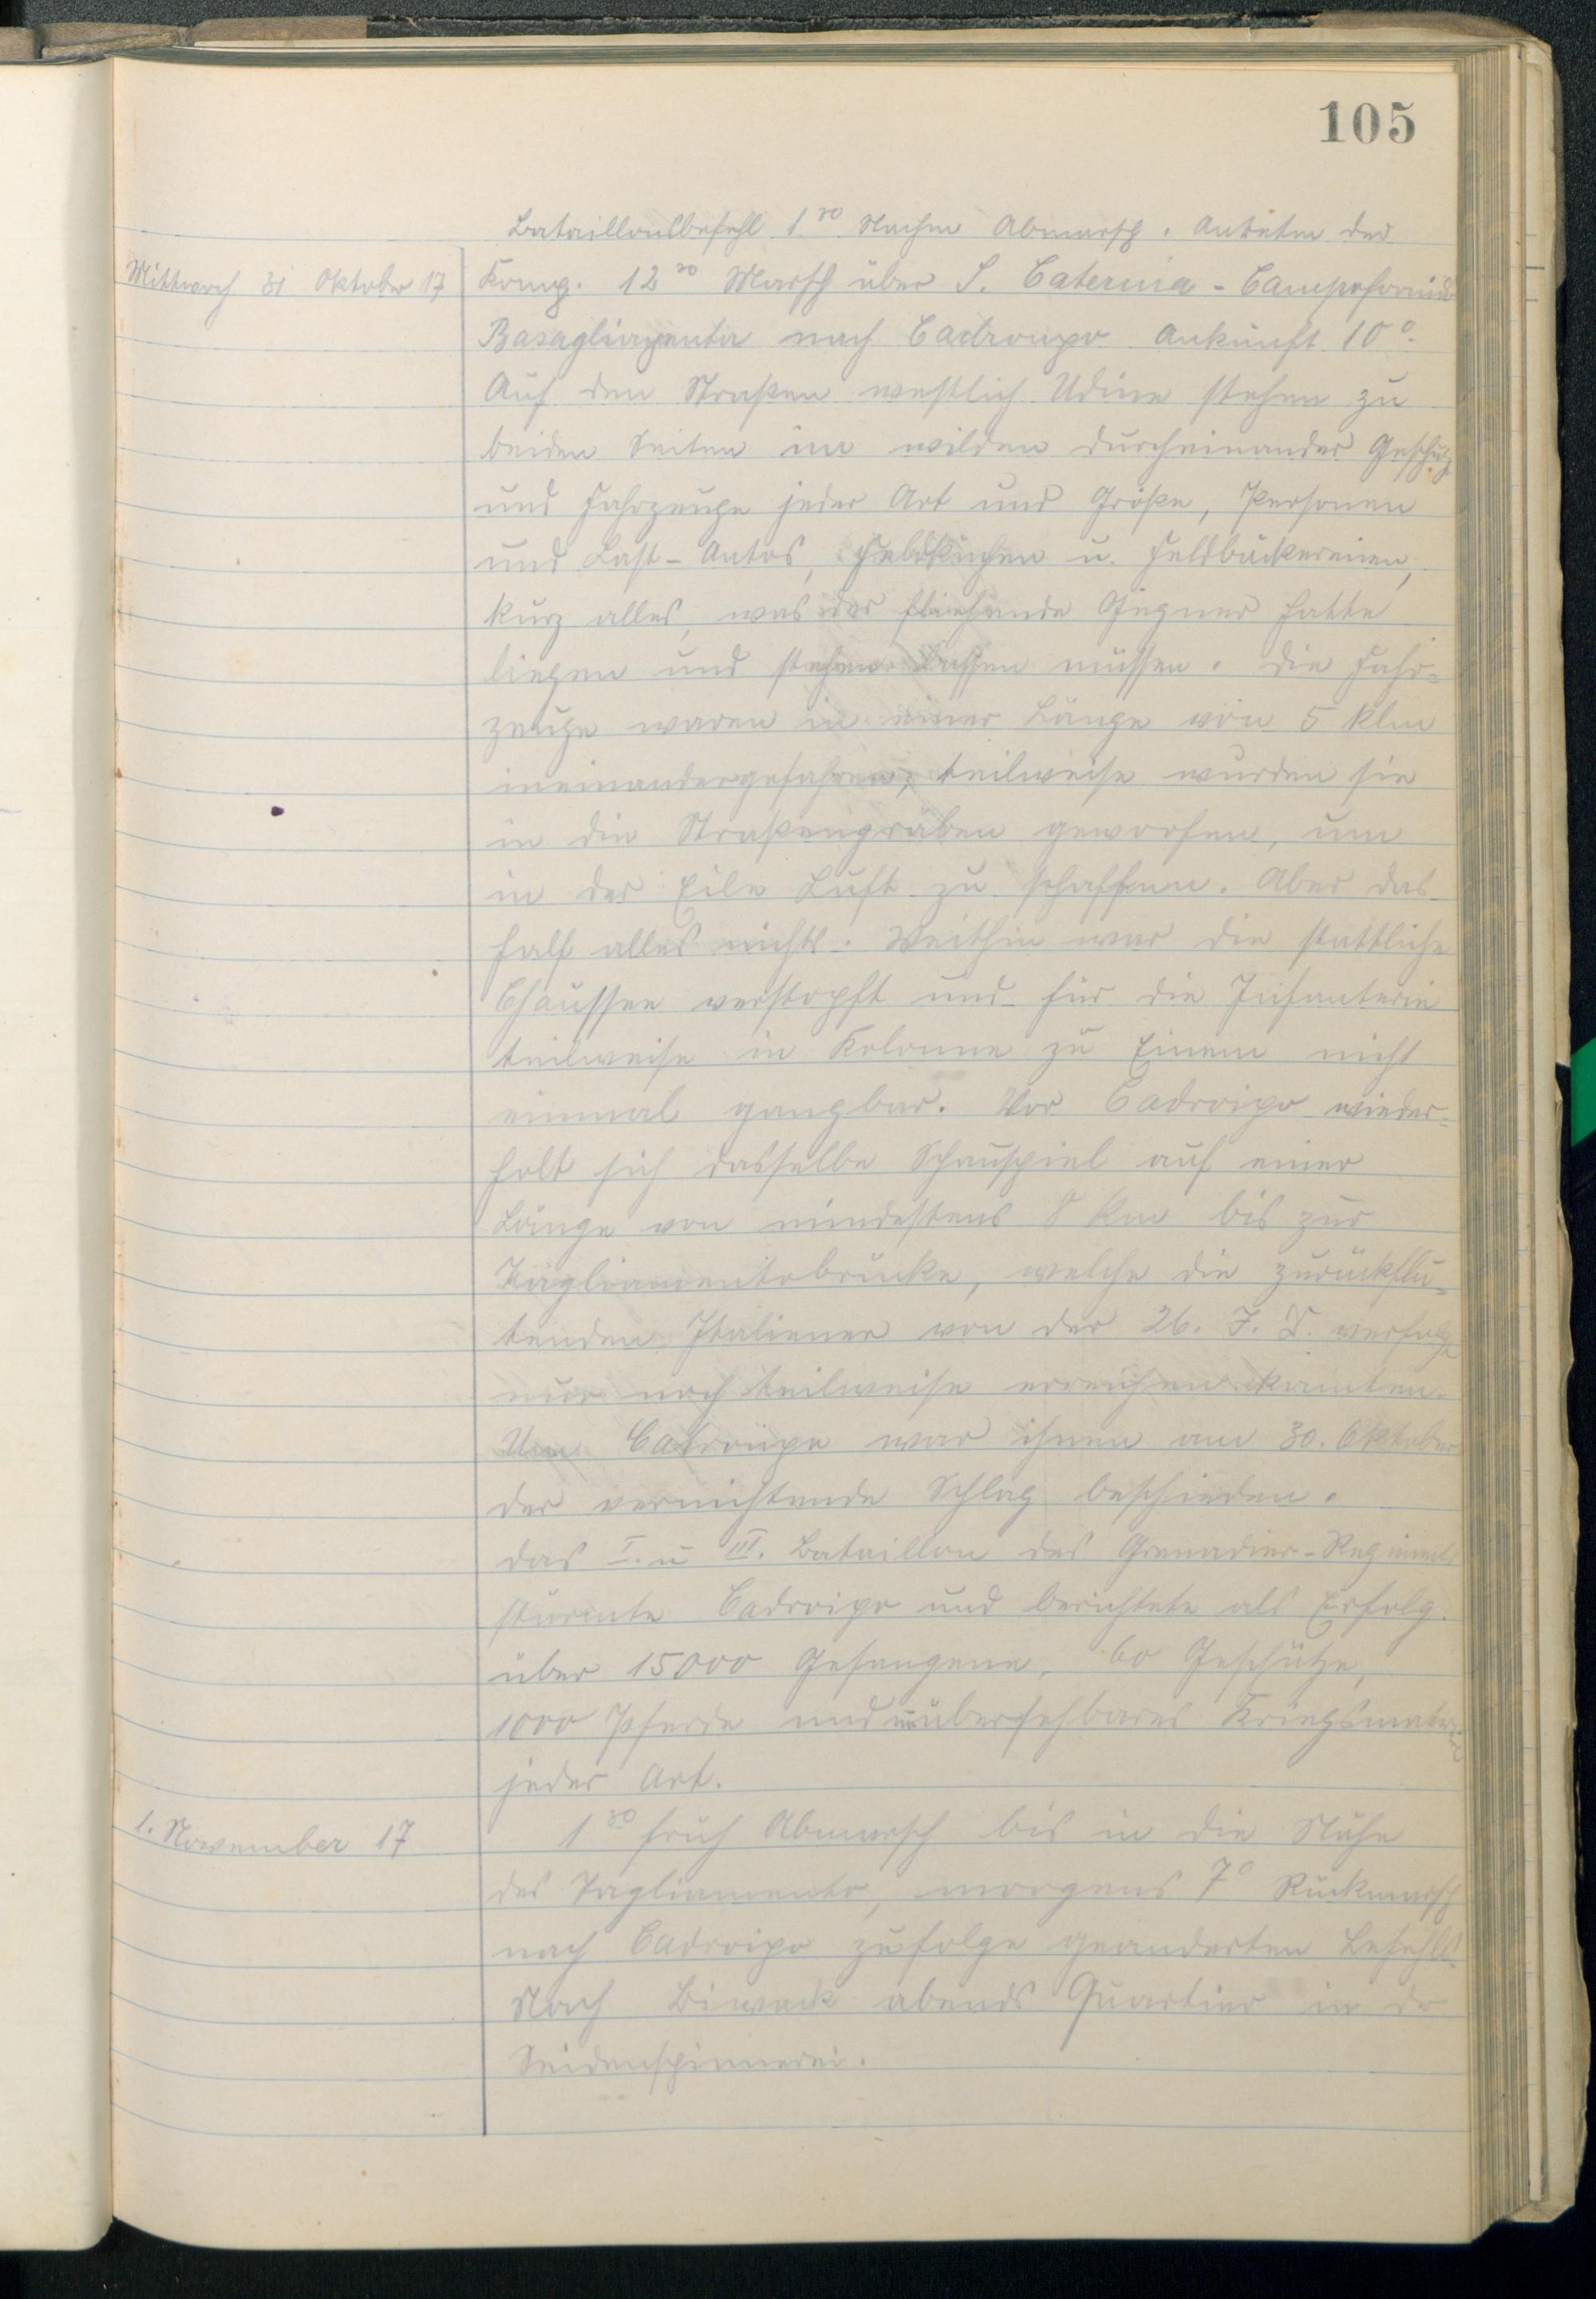 105
Bataillonsbefehl 1³⁰ Nachm Abmarsch. Antreten der
Mittwoch 31 Oktober 17 Komp. 12³⁰ Marsch über S. Caterina - Campoformido
Basagliapenta nach Cadroipo Ankunft 10⁰.
Auf den Straßen westlich Udine stehen zu
beiden Seiten im wilden durcheinander Geschütz
und Fahrzeuge jeder Art und Größe, Personen
und Last-Autos, Feldküchen u. Feldbäckereien,
kurz alles, was der fliehende Gegner hatte
liegen und stehen lassen müssen. Die Fahr=
zeuge waren in einer Länge von 5 klm
ineinandergefahren, teilweise wurden sie
in die Straßengräben geworfen, um
in der Eile Luft zu schaffen. Aber das
half alles nichts. Weithin war die stattliche
Chaussee verstopft und für die Infanterie
teilweise in Kolonne zu Einem nicht
einmal gangbar. Vor Cadroipo wieder=
holt sich dasselbe Schauspiel auf einer
Länge von mindestens 8 km bis zur
Tagliamentobrücke, welche die zurückflu=
tenden Italiener von der 26. J. D. verfolgt
nur noch teilweise erreichen konnten.
Um Cadroipo war ihnen am 30. Oktober
der vernichtende Schlag beschieden.
das I. u III. Bataillon des Grenadier-Regiments
stürmte Cadroipo und berichtete als Erfolg.
über 15000 Gefangene, 60 Geschütze,
1000 Pferde und unübersehbares Kriegsmaterial
jeder Art.
1. November 17 1³⁰ früh Abmarsch bis in die Nähe
des Tagliamento, morgens 7⁰ Rückmarsch
nach Cadroipo zufolge geänderten Befehls.
Nach Biwack abends Quartier in der
Seidenspinnerei.